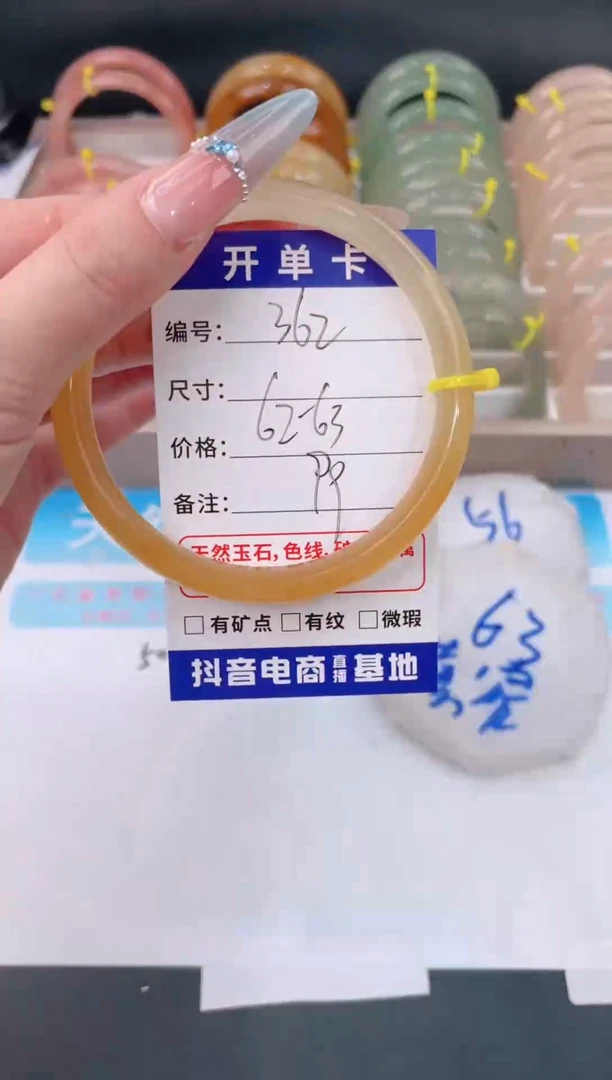 开单卡
编号: 362
尺寸: 62-63
价格: 99
备注:
天然玉石,色线,
□有矿点 □有纹 □微瑕
抖音电商直播基地
56
63